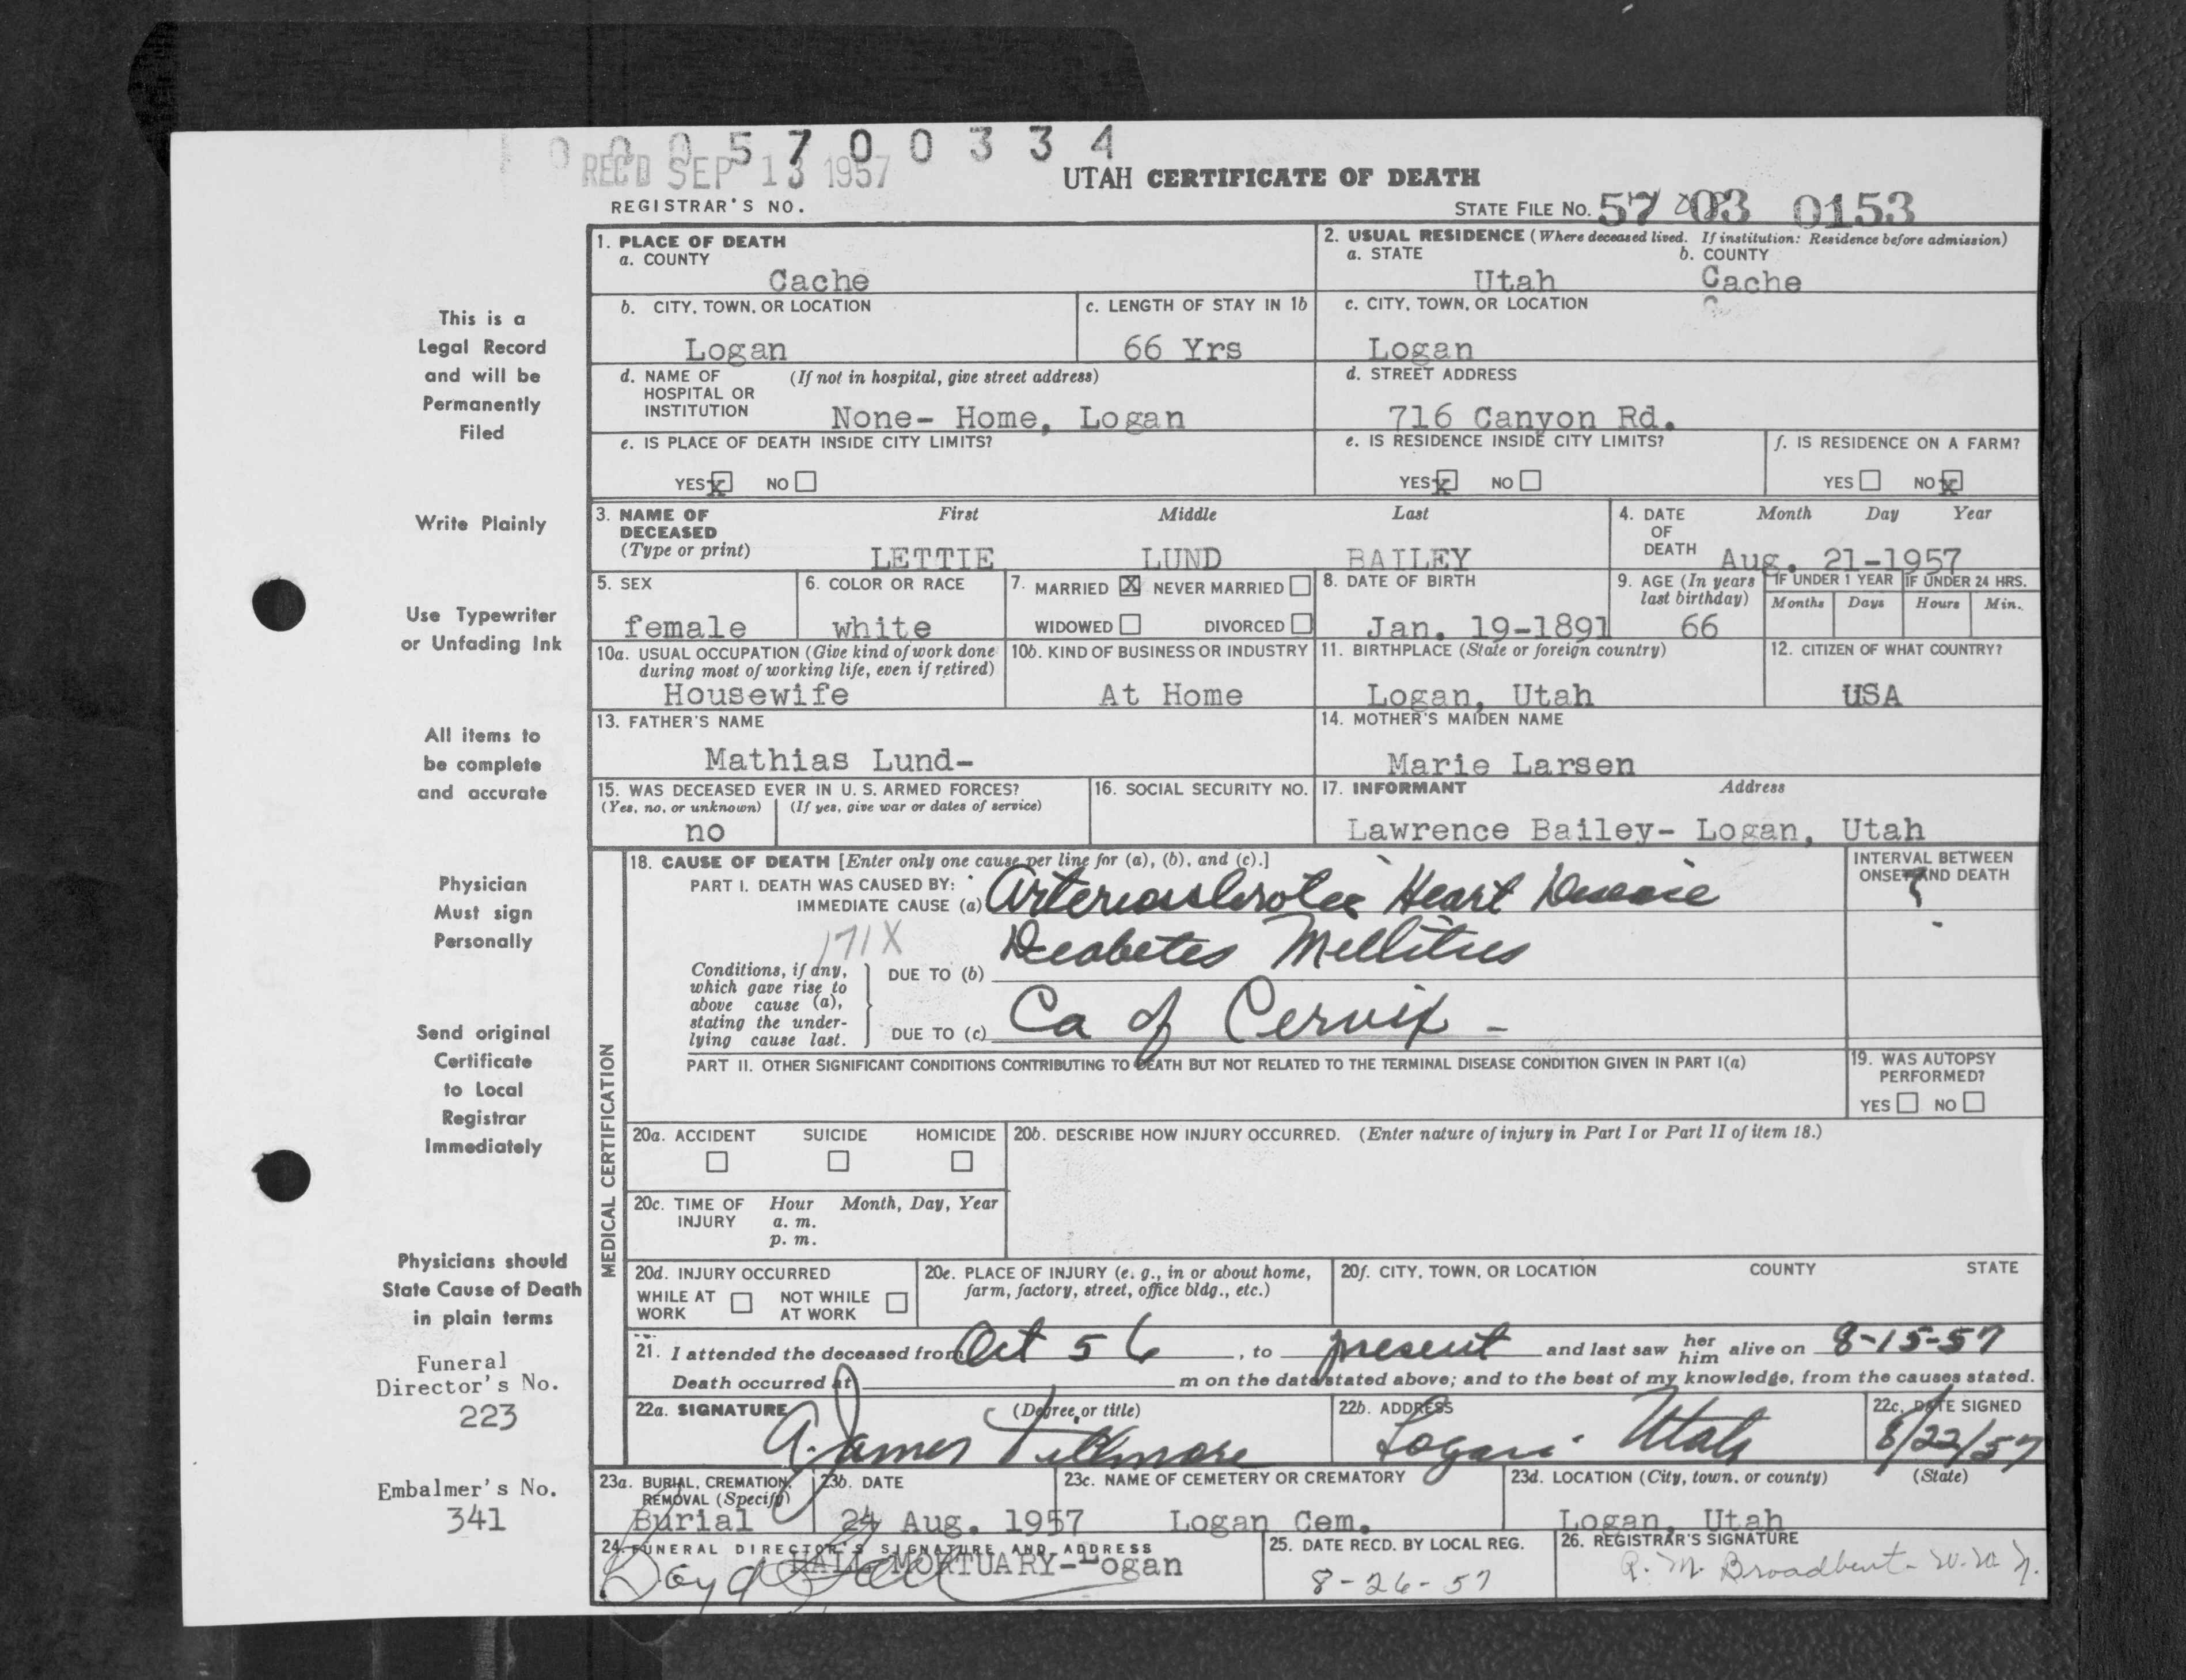 1 0 0 0 5 7 0 0 3 3 4
REC'D SEP 13 1957
UTAH CERTIFICATE OF DEATH
REGISTRAR'S NO.
STATE FILE No. 57 03 0153
This is a
Legal Record
and will be
Permanently
Filed
Write Plainly
Use Typewriter
or Unfading Ink
All items to
be complete
and accurate
Physician
Must sign
Personally
Send original
Certificate
to Local
Registrar
Immediately
Physicians should
State Cause of Death
in plain terms
Funeral
Director's No.
223
Embalmer's No.
341
1. PLACE OF DEATH
a. COUNTY
Cache
2. USUAL RESIDENCE (Where deceased lived. If institution: Residence before admission)
a. STATE b. COUNTY
Utah Cache
b. CITY, TOWN, OR LOCATION
Logan
c. LENGTH OF STAY IN 1b
66 Yrs
c. CITY, TOWN, OR LOCATION
Logan
d. NAME OF (If not in hospital, give street address)
HOSPITAL OR
INSTITUTION None- Home, Logan
d. STREET ADDRESS
716 Canyon Rd.
e. IS PLACE OF DEATH INSIDE CITY LIMITS?
YES X NO
e. IS RESIDENCE INSIDE CITY LIMITS?
YES X NO
f. IS RESIDENCE ON A FARM?
YES NO X
3. NAME OF First Middle Last
DECEASED
(Type or print) LETTIE LUND BAILEY
4. DATE Month Day Year
OF
DEATH Aug. 21-1957
5. SEX
female
6. COLOR OR RACE
white
7. MARRIED X NEVER MARRIED
WIDOWED DIVORCED
8. DATE OF BIRTH
Jan. 19-1891
9. AGE (In years
last birthday)
66
IF UNDER 1 YEAR IF UNDER 24 HRS.
Months Days Hours Min.
10a. USUAL OCCUPATION (Give kind of work done
during most of working life, even if retired)
Housewife
10b. KIND OF BUSINESS OR INDUSTRY
At Home
11. BIRTHPLACE (State or foreign country)
Logan, Utah
12. CITIZEN OF WHAT COUNTRY?
USA
13. FATHER'S NAME
Mathias Lund-
14. MOTHER'S MAIDEN NAME
Marie Larsen
15. WAS DECEASED EVER IN U. S. ARMED FORCES?
(Yes, no, or unknown) (If yes, give war or dates of service)
no
16. SOCIAL SECURITY NO.
17. INFORMANT Address
Lawrence Bailey- Logan, Utah
MEDICAL CERTIFICATION
18. CAUSE OF DEATH [Enter only one cause per line for (a), (b), and (c).]
PART I. DEATH WAS CAUSED BY:
IMMEDIATE CAUSE (a) Arteriosclerotic Heart Disease
INTERVAL BETWEEN
ONSET AND DEATH
?
171X
Conditions, if any,
which gave rise to
above cause (a),
stating the under-
lying cause last.
DUE TO (b) Deabetes Mellitus
DUE TO (c) Ca of Cervix -
PART II. OTHER SIGNIFICANT CONDITIONS CONTRIBUTING TO DEATH BUT NOT RELATED TO THE TERMINAL DISEASE CONDITION GIVEN IN PART I(a)
19. WAS AUTOPSY
PERFORMED?
YES NO
20a. ACCIDENT SUICIDE HOMICIDE
20b. DESCRIBE HOW INJURY OCCURRED. (Enter nature of injury in Part I or Part II of item 18.)
20c. TIME OF Hour Month, Day, Year
INJURY a. m.
p. m.
20d. INJURY OCCURRED
WHILE AT NOT WHILE
WORK AT WORK
20e. PLACE OF INJURY (e. g., in or about home,
farm, factory, street, office bldg., etc.)
20f. CITY, TOWN, OR LOCATION COUNTY STATE
21. I attended the deceased from Oct 56, to present and last saw her him alive on 8-15-57
Death occurred at m on the date stated above; and to the best of my knowledge, from the causes stated.
22a. SIGNATURE (Degree or title)
James Fillmore
22b. ADDRESS
Logan Utah
22c. DATE SIGNED
8/22/57
23a. BURIAL, CREMATION,
REMOVAL (Specify)
Burial
23b. DATE
24 Aug. 1957
23c. NAME OF CEMETERY OR CREMATORY
Logan Cem.
23d. LOCATION (City, town, or county) (State)
Logan, Utah
24. FUNERAL DIRECTOR'S SIGNATURE AND ADDRESS
HALL MORTUARY-Logan
25. DATE RECD. BY LOCAL REG.
8-26-57
26. REGISTRAR'S SIGNATURE
R. M. Broadbent